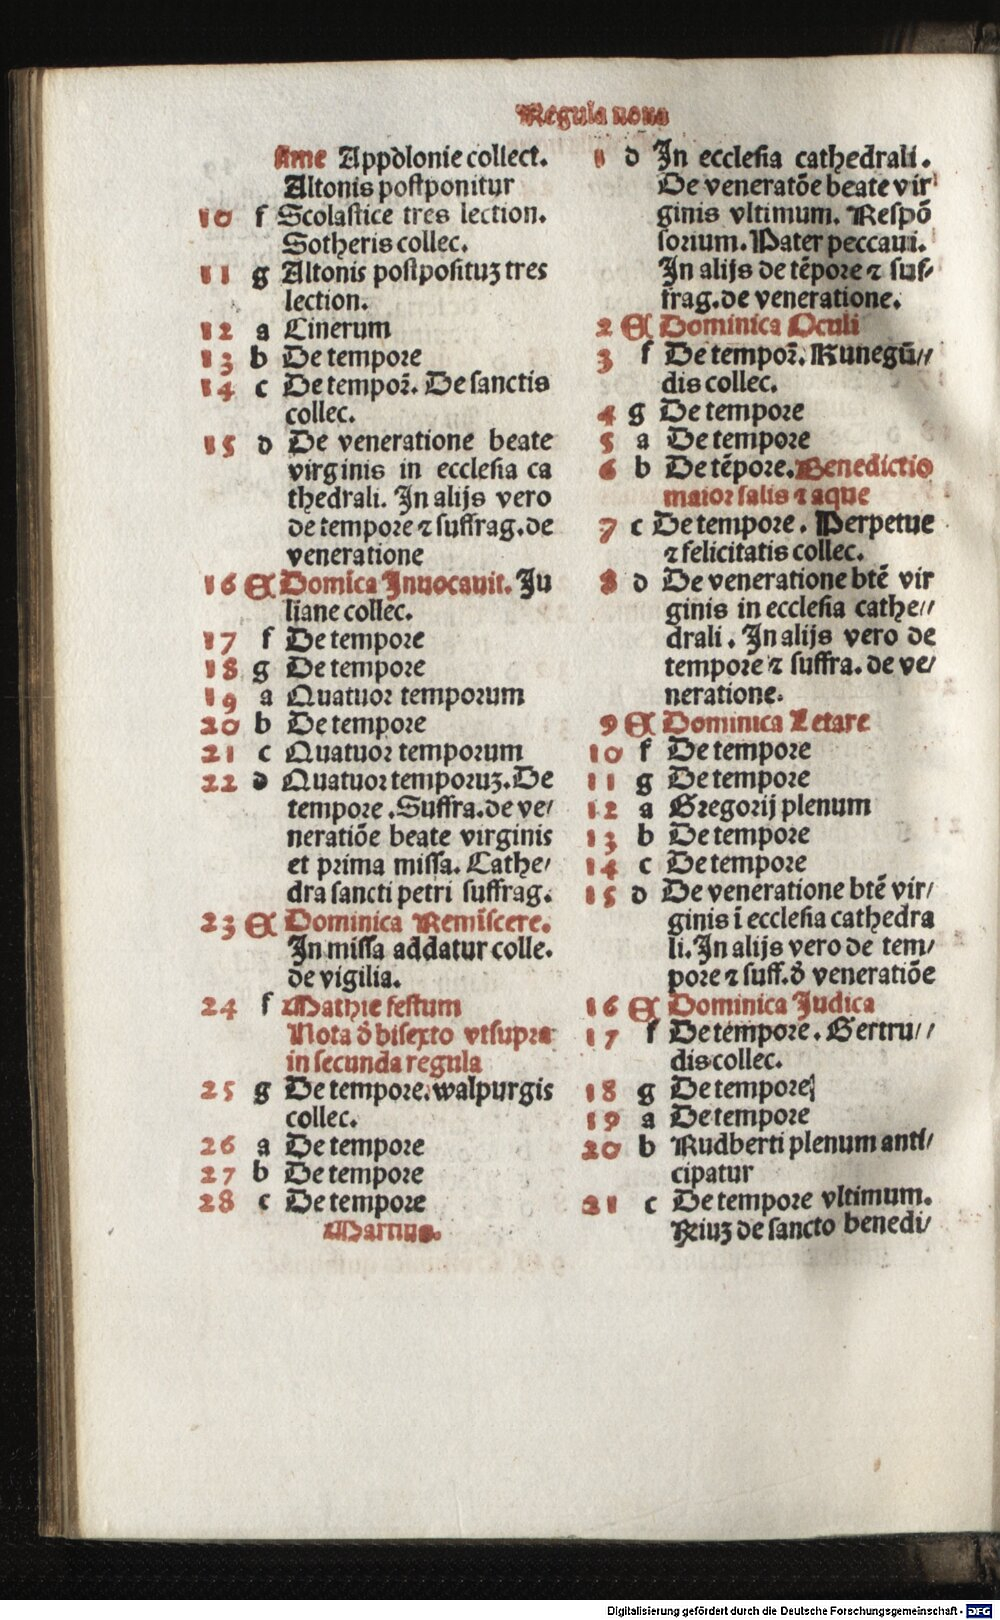 Regula nona
sime Appolonie collect.
Altonis postponitur
10 f Scolastice tres lection.
Sotheris collec.
11 g Altonis postposituȝ tres
lection.
12 a Cinerum
13 b De tempore
14 c De tempoꝛ̃. De sanctis
collec.
15 d De veneratione beate
virginis in ecclesia ca
thedrali. In alijs vero
de tempore ⁊ suffrag. de
veneratione
16 A Domĩca Inuocauit. Ju
liane collec.
17 f De tempore
18 g De tempore
19 a Quatuor temporum
20 b De tempore
21 c Quatuor temporum
22 d Quatuor temporuȝ. De
tempore. Suffra. de ve/
neratiõe beate virginis
et prima missa. Cathe/
dra sancti petri suffrag.
23 A Dominica Remĩscere.
In missa addatur colle.
de vigilia.
24 f Mathie festum
Nota ð bisexto vt supra
in secunda regula
25 g De tempore. walpurgis
collec.
26 a De tempore
27 b De tempore
28 c De tempore
Martius.
1 d In ecclesia cathedrali.
De veneratõe beate vir
ginis vltimum. Respõ
sorium. Pater peccaui.
In alijs de tẽpore ⁊ suf/
frag. de veneratione.
2 A Dominica Oculi
3 f De tempoꝛ̃. Kunegũ//
dis collec.
4 g De tempore
5 a De tempore
6 b De tẽpore. Benedictio
maior salis ⁊ aque
7 c De tempore. Perpetue
⁊ felicitatis collec.
8 d De veneratione btẽ vir
ginis in ecclesia cathe//
drali. In alijs vero de
tempore ⁊ suffra. de ve/
neratione.
9 A Dominica Letare
10 f De tempore
11 g De tempore
12 a Gregorij plenum
13 b De tempore
14 c De tempore
15 d De veneratione btẽ vir/
ginis ĩ ecclesia cathedra
li. In alijs vero de tem/
pore ⁊ suff. ð veneratiõe
16 A Dominica Judica
17 f De tempore. Gertru//
dis collec.
18 g De tempore
19 a De tempore
20 b Rudberti plenum anti/
cipatur
21 c De tempore vltimum.
Riuȝ de sancto benedi/
Digitalisierung gefördert durch die Deutsche Forschungsgemeinschaft - DFG